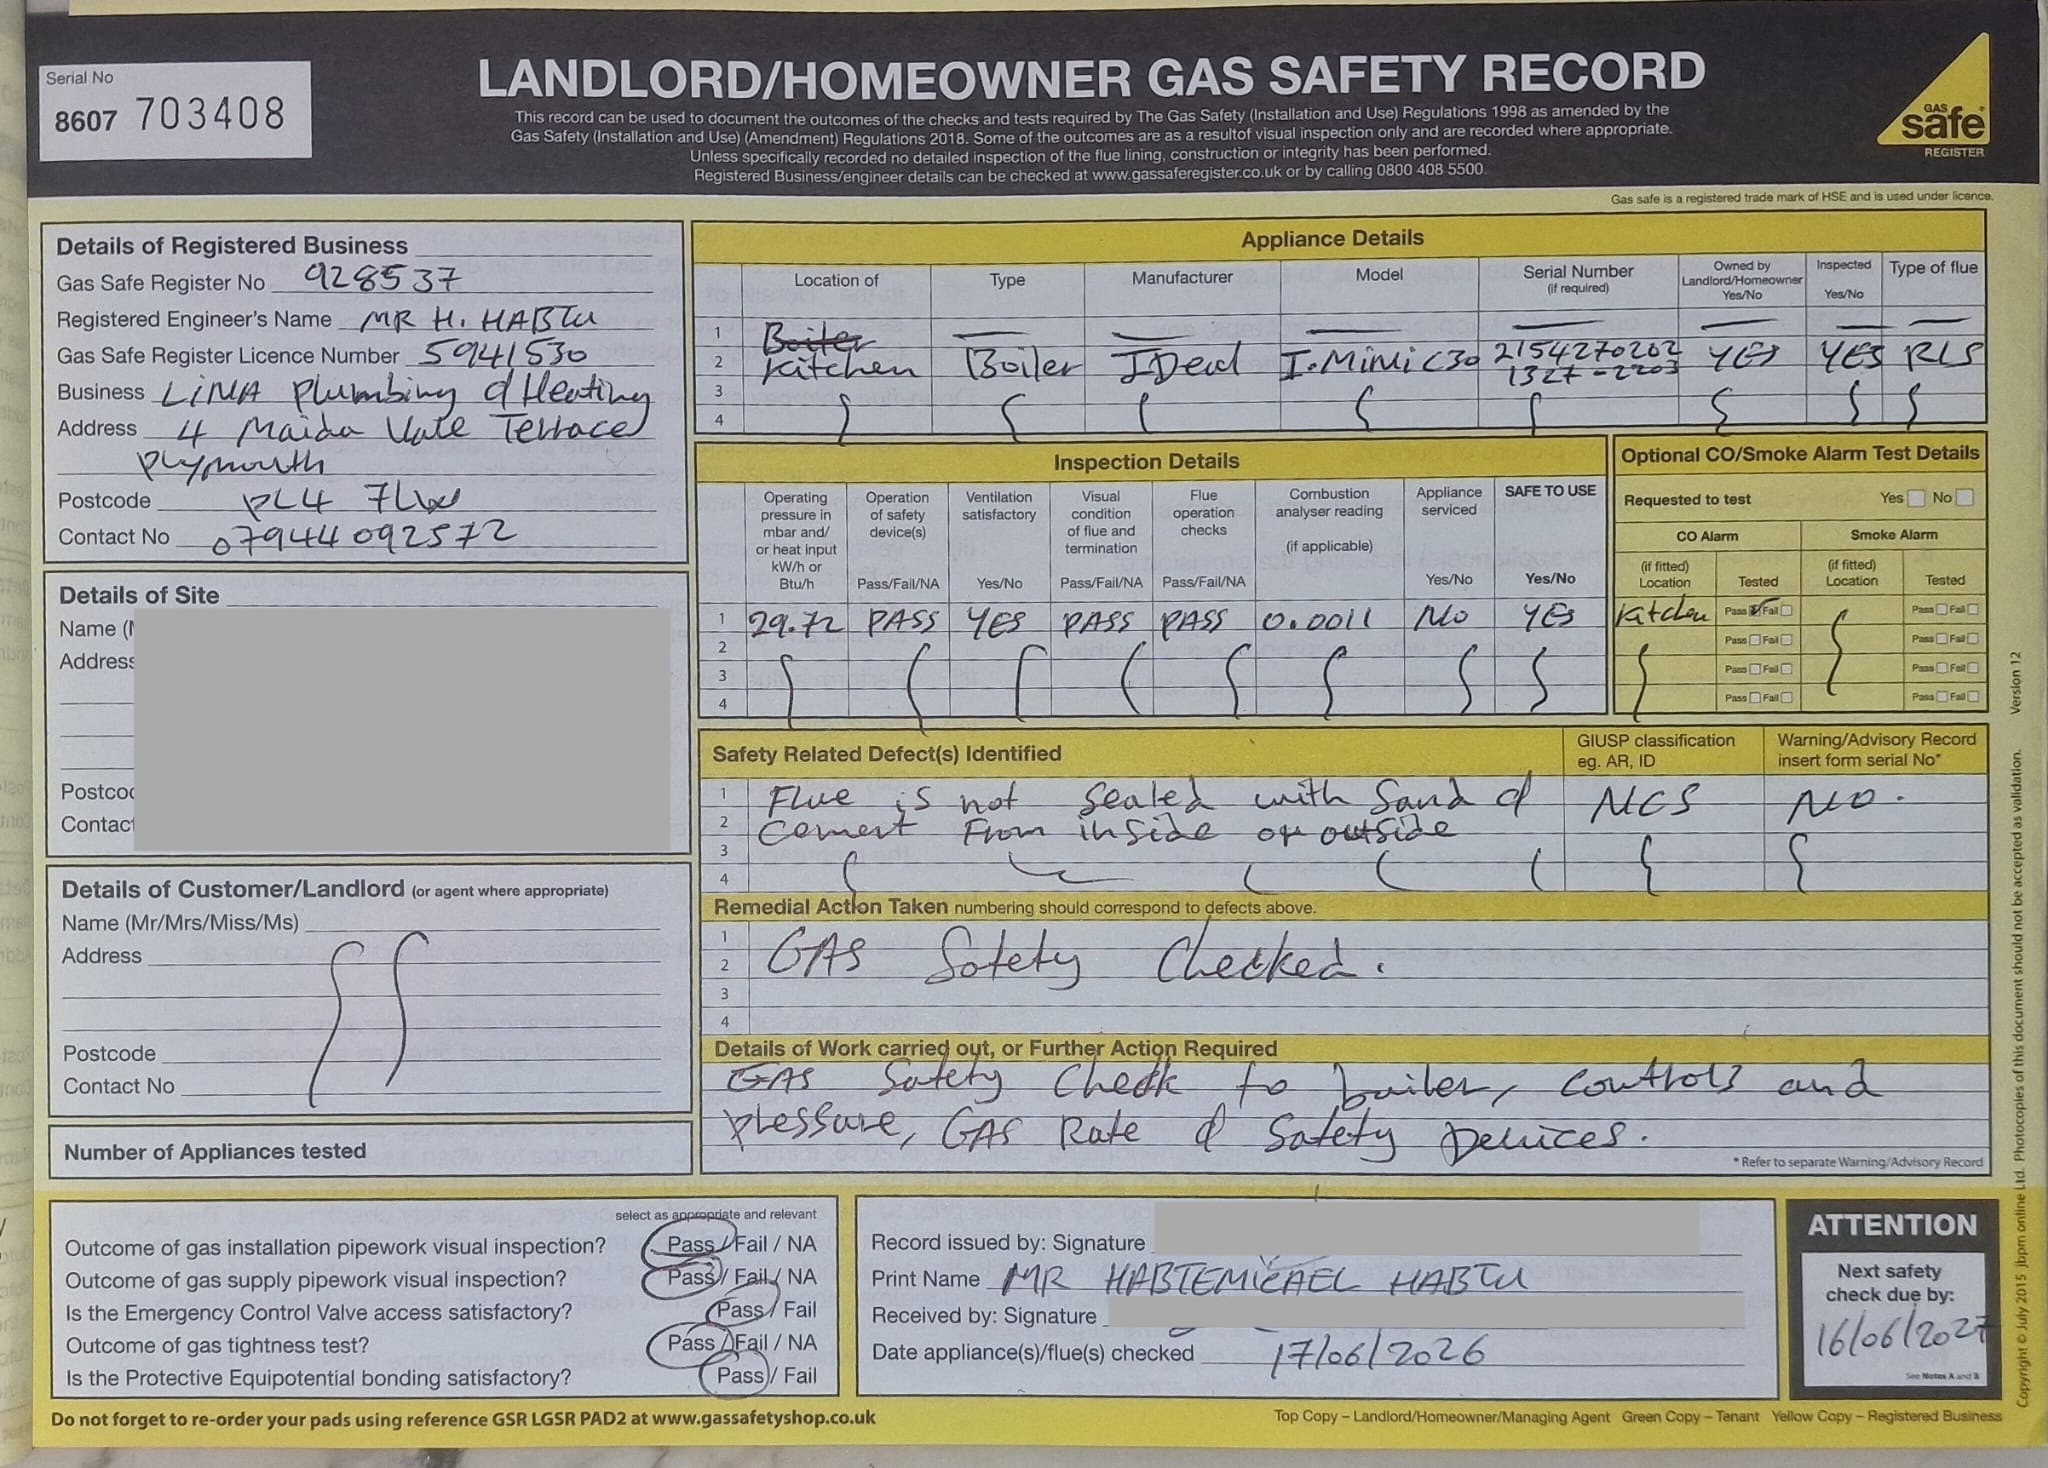 Serial No
8607 703408
LANDLORD/HOMEOWNER GAS SAFETY RECORD
This record can be used to document the outcomes of the checks and tests required by The Gas Safety (Installation and Use) Regulations 1998 as amended by the
Gas Safety (Installation and Use) (Amendment) Regulations 2018. Some of the outcomes are as a resultof visual inspection only and are recorded where appropriate.
Unless specifically recorded no detailed inspection of the flue lining, construction or integrity has been performed.
Registered Business/engineer details can be checked at www.gassaferegister.co.uk or by calling 0800 408 5500.
GAS
safe
REGISTER
Gas safe is a registered trade mark of HSE and is used under licence.
Details of Registered Business
Gas Safe Register No 928537
Registered Engineer's Name MR H. HABTU
Gas Safe Register Licence Number 5941530
Business LiNA Plumbing & Heating
Address 4 Maida Vale Terrace
Plymouth
Postcode PL4 7LW
Contact No 07944092572
Details of Site
Name
Address
Contact
Details of Customer/Landlord (or agent where appropriate)
Name (Mr/Mrs/Miss/Ms)
Address
Postcode
Contact No
Number of Appliances tested
Appliance Details
Location of Type Manufacturer Model Serial Number (if required) Owned by Landlord/Homeowner Yes/No Inspected Yes/No Type of flue
1 Boiler
2 Kitchen Boiler IDeal 2154270202 YES YES RLS
3
4
Inspection Details
Operating pressure in mbar and/ or heat input kW/h or Btu/h
Operation of safety device(s) Pass/Fail/NA
Ventilation satisfactory Yes/No
Visual condition of flue and termination Pass/Fail/NA
Flue operation checks Pass/Fail/NA
Combustion analyser reading (if applicable)
Appliance serviced Yes/No
SAFE TO USE Yes/No
1 29.72 PASS YES PASS PASS 0.0011 NO YES
2
3
4
Optional CO/Smoke Alarm Test Details
Requested to test Yes No
CO Alarm Smoke Alarm
(if fitted) Location Tested (if fitted) Location Tested
Kitchen Pass Fail Pass Fail
Pass Fail Pass Fail
Pass Fail Pass Fail
Pass Fail Pass Fail
Safety Related Defect(s) Identified GIUSP classification eg. AR, ID Warning/Advisory Record insert form serial No*
1 Flue is not sealed with Sand & NCS NO.
2 Cement From inside or outside
3
4
Remedial Action Taken numbering should correspond to defects above.
1
2 GAS Safety Checked.
3
4
Details of Work carried out, or Further Action Required
GAS Safety Check to boiler, controls and
pressure, GAS Rate & Safety Devices.
* Refer to separate Warning/Advisory Record
select as appropriate and relevant
Outcome of gas installation pipework visual inspection? Pass / Fail / NA
Outcome of gas supply pipework visual inspection? Pass / Fail / NA
Is the Emergency Control Valve access satisfactory? Pass / Fail
Outcome of gas tightness test? Pass / Fail / NA
Is the Protective Equipotential bonding satisfactory? Pass / Fail
Record issued by: Signature
Print Name MR HABTEMICAEL HABTU
Received by: Signature
Date appliance(s)/flue(s) checked 17/06/2026
ATTENTION
Next safety
check due by:
16/06/2027
See Notes A and B
Do not forget to re-order your pads using reference GSR LGSR PAD2 at www.gassafetyshop.co.uk
Top Copy – Landlord/Homeowner/Managing Agent Green Copy – Tenant Yellow Copy – Registered Business
Copyright © July 2015 jbpm online Ltd. Photocopies of this document should not be accepted as validation. Version 12